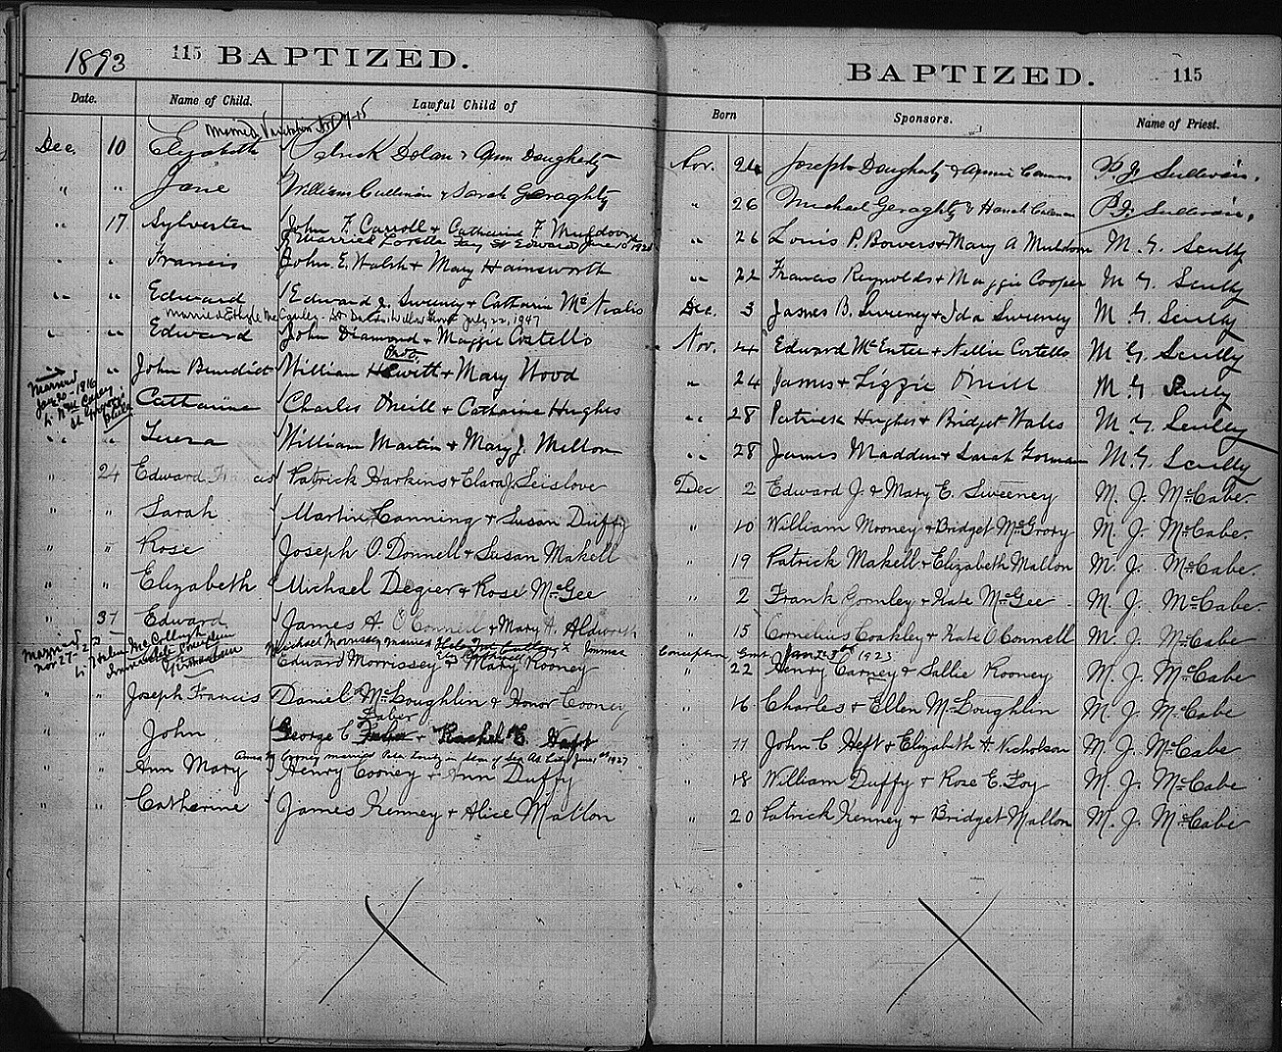 1893 115 BAPTIZED.
Date. Name of Child. Lawful Child of
Married Visitation
Dec. 10 Elizabeth Patrick Dolan & Ann Dougherty
" " Jane William Cullinan & Sarah Geraghty
" 17 Sylvester John F. Carroll & Catharine F. Muldoon
Married Loretta Fay St Edward June 10th 1925
" " Francis John E. Walsh & Mary Hainsworth
" " Edward Edward J. Sweeney & Catharine McNealis
married Ethyle July 22, 1947
" " Edward John Diamond & Maggie Costello
" " John Benedict William Hewitt & Mary Wood
Married
Jan 20-1916
to Wm
at
Phila
Catharine Charles O'neill & Catharine Hughes
" " Teresa William Martin & Mary J. Mellon
" 24 Edward Francis Patrick Harkins & Clara J. Seislove
" " Sarah Martin Canning & Susan Duffy
" " Rose Joseph O'Donnell & Susan Makell
" " Elizabeth Michael Degier & Rose McGee
" 31 Edward James A. O'Connell & Mary A. Aldworth
Married
Nov 27-
to Helen McCollough
Immaculate
Germantown
Michael Morrissey married
Edward Morrissey & Mary Rooney
" " Joseph Francis Daniel McLoughlin & Honor Cooney
Faber
" " John George C & Rachel E Heft
Anna M Cooney married Peter June 1st 1927
" " Ann Mary Henry Cooney & Ann Duffy
" " Catherine James Kenney & Alice Mallon
BAPTIZED. 115
Born Sponsors. Name of Priest.
Nov. 24 Joseph Dougherty & Annie P. J. Sullivan.
" 26 Michael Geraghty & Hanah Cullinan P. J. Sullivan.
" 26 Louis P. Bowers & Mary A Muldoon M. G. Scully
" 22 Francis Reynolds & Maggie Cooper M. G. Scully
Dec. 3 James B. Sweeney & Ida Sweeney M. G. Scully
Nov. 4 Edward McEntee & Nellie Costello M. G. Scully
" 24 James & Lizzie O'neill M. G. Scully
" 28 Patrick Hughes & Bridget Wales M. G. Scully
" 28 James Madden & Sarah Gorman M. G. Scully
Dec 2 Edward J. & Mary E. Sweeney M. J. McCabe
" 10 William Mooney & Bridget McGrory M. J. McCabe.
" 19 Patrick Makell & Elizabeth Mallon M. J. McCabe.
" 2 Frank Gormley & Kate McGee M. J. McCabe.
" 15 Cornelius Coakley & Kate O'Connell M. J. McCabe
Conception, Jan 3rd 1923
" 22 Henry Carney & Sallie Rooney M. J. McCabe
" 16 Charles & Ellen McLoughlin M. J. McCabe
" 11 John C Heft & Elizabeth A. Nicholson M. J. McCabe
" 18 William Duffy & Rose E. Foy M. J. McCabe
" 20 Patrick Kenney & Bridget Mallon M. J. McCabe